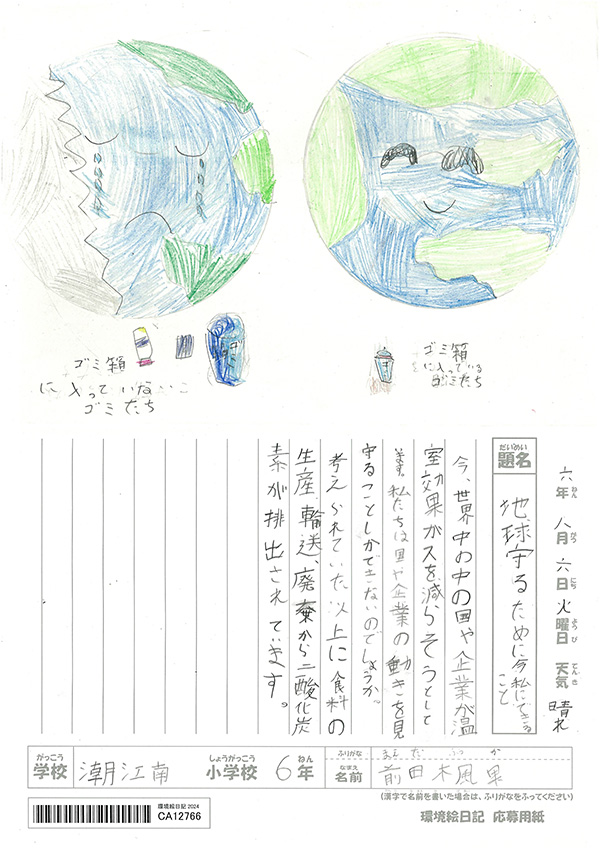 ゴミ箱
に入っていない
ゴミたち
ゴミ箱
に入っている
ゴミたち
六年 八月 六日 火曜日 天気 晴れ
ねん がつ にち ようび てんき
だいめい
題名
地球守るために今私にできる
こと
今、世界中の中の国や企業が温
室効果ガスを減らそうとして
います。私たちは国や企業の動きを見
守ることしかできないのでしょうか。
考えられていた以上に食料の
生産、輪送、廃棄から二酸化炭
素が排出されています。
がっこう しょうがっこう ねん
学校 潮江南 小学校 6年
ふりがな まえ だ ふう か
なまえ
名前 前田木風果
(漢字で名前を書いた場合は、ふりがなをふってください)
環境絵日記 2024
CA12766
環境絵日記 応募用紙